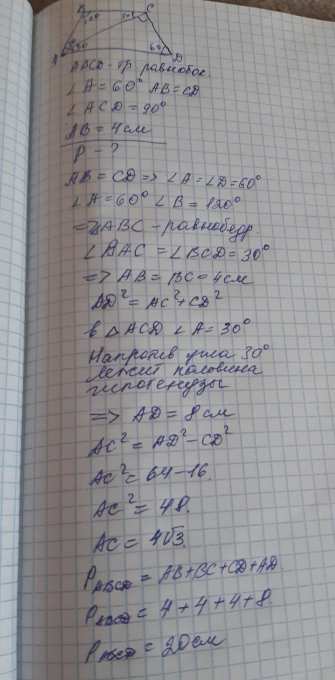 B C
30° 90°
30° 60°
A D
ABCD - тр. равнобок.
∠A = 60° AB = CD
∠ACD = 90°
AB = 4 см
P - ?
AB = CD => ∠A = ∠D = 60°
∠A = 60° ∠B = 120°
=> ABC - равнобедр
∠BAC = ∠BCD = 30°
=> AB = BC = 4 см
AD² = AC² + CD²
в △ACD ∠A = 30°
Напротив угла 30°
лежит половина
гипотенузы
=> AD = 8 см
AC² = AD² - CD²
AC² = 64 - 16.
AC² = 48.
AC = 4√3.
P ABCD = AB + BC + CD + AD.
P ABCD = 4 + 4 + 4 + 8.
P ABCD = 20 см